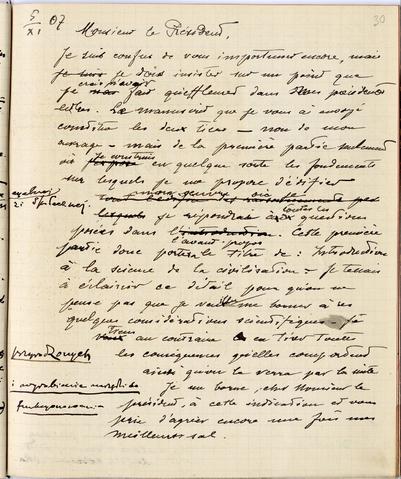 5/XI 07
30
Monsieur le Président,
Je suis confus de vous importuner encore, mais
je dois insister sur un point que
je fait qu'effleurer dans mes précédentes
lettres. Le manuscrit que je vous ai envoyé
constitue les deux tiers – non de mon
ouvrage – mais de la première partie seulement
où je construis en quelque sorte les fondements
sur lesquels je me propose d'édifier
mon œuvre où
je répondrai à toutes les questions
posées dans l'avant propos. Cette première
partie donc portera le titre de : Introduction
à la science de la civilisation – Je tenais
à éclaircir ce détail pour qu'on ne
pense pas que je me borner à ces
quelques considérations scientifiques – Je
tiens au contraire à en tirer toutes
les conséquences qu'elles comportent
ainsi qu'on le verra par la suite
Je me borne, cher Monsieur le
président, à cette indication et vous
prie d'agréer encore une fois mes
meilleurs sal.